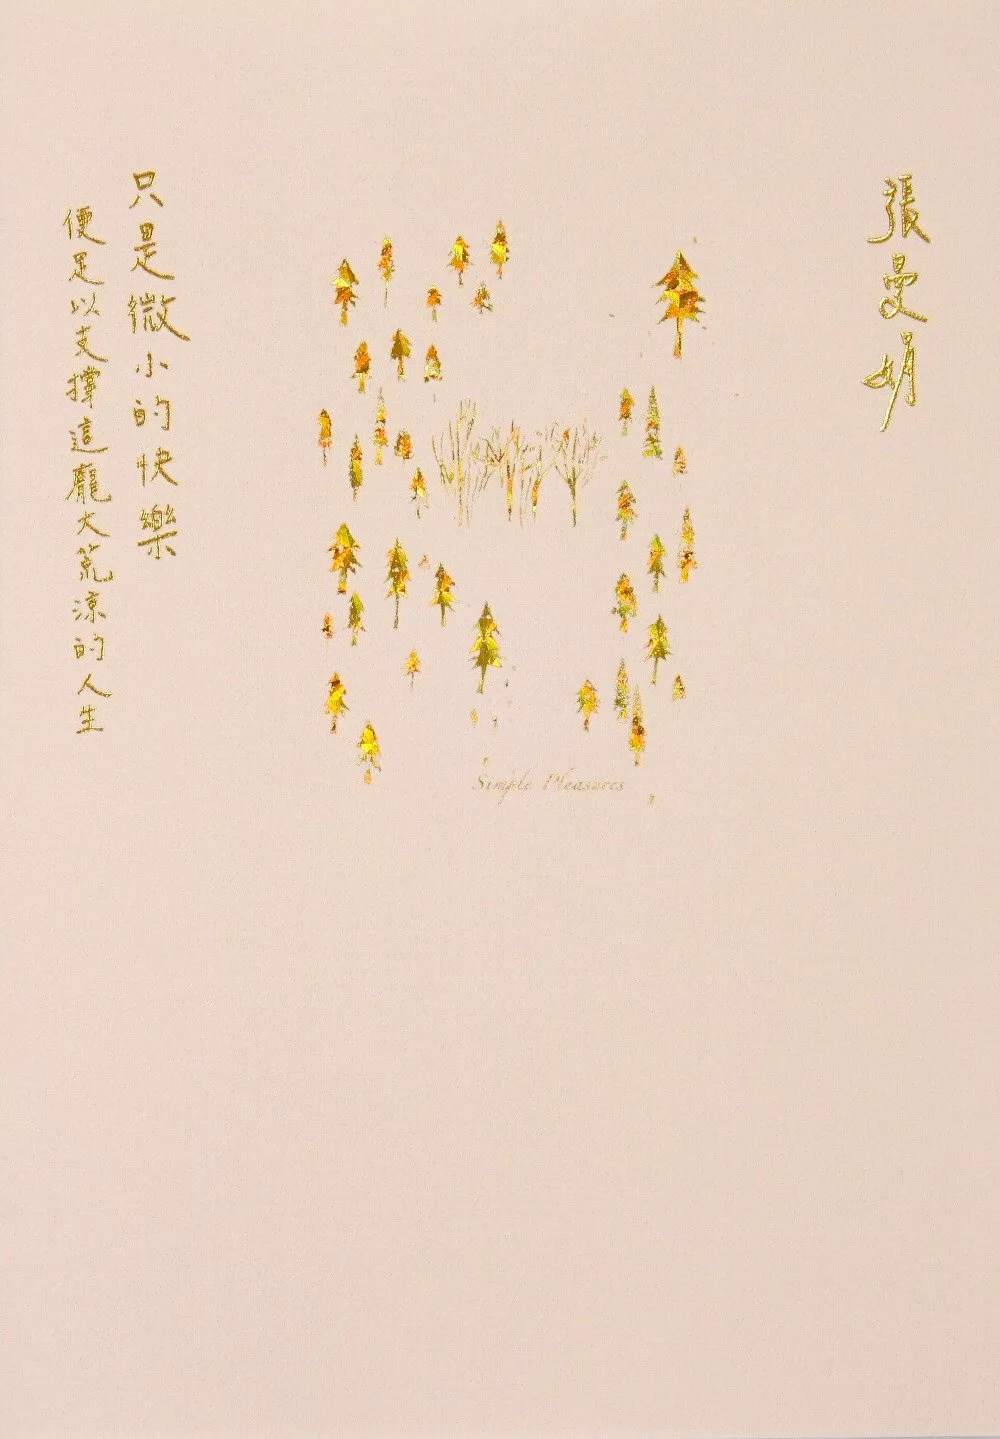 張曼娟
只是微小的快樂
便足以支撐這龐大荒涼的人生
Simple Pleasures